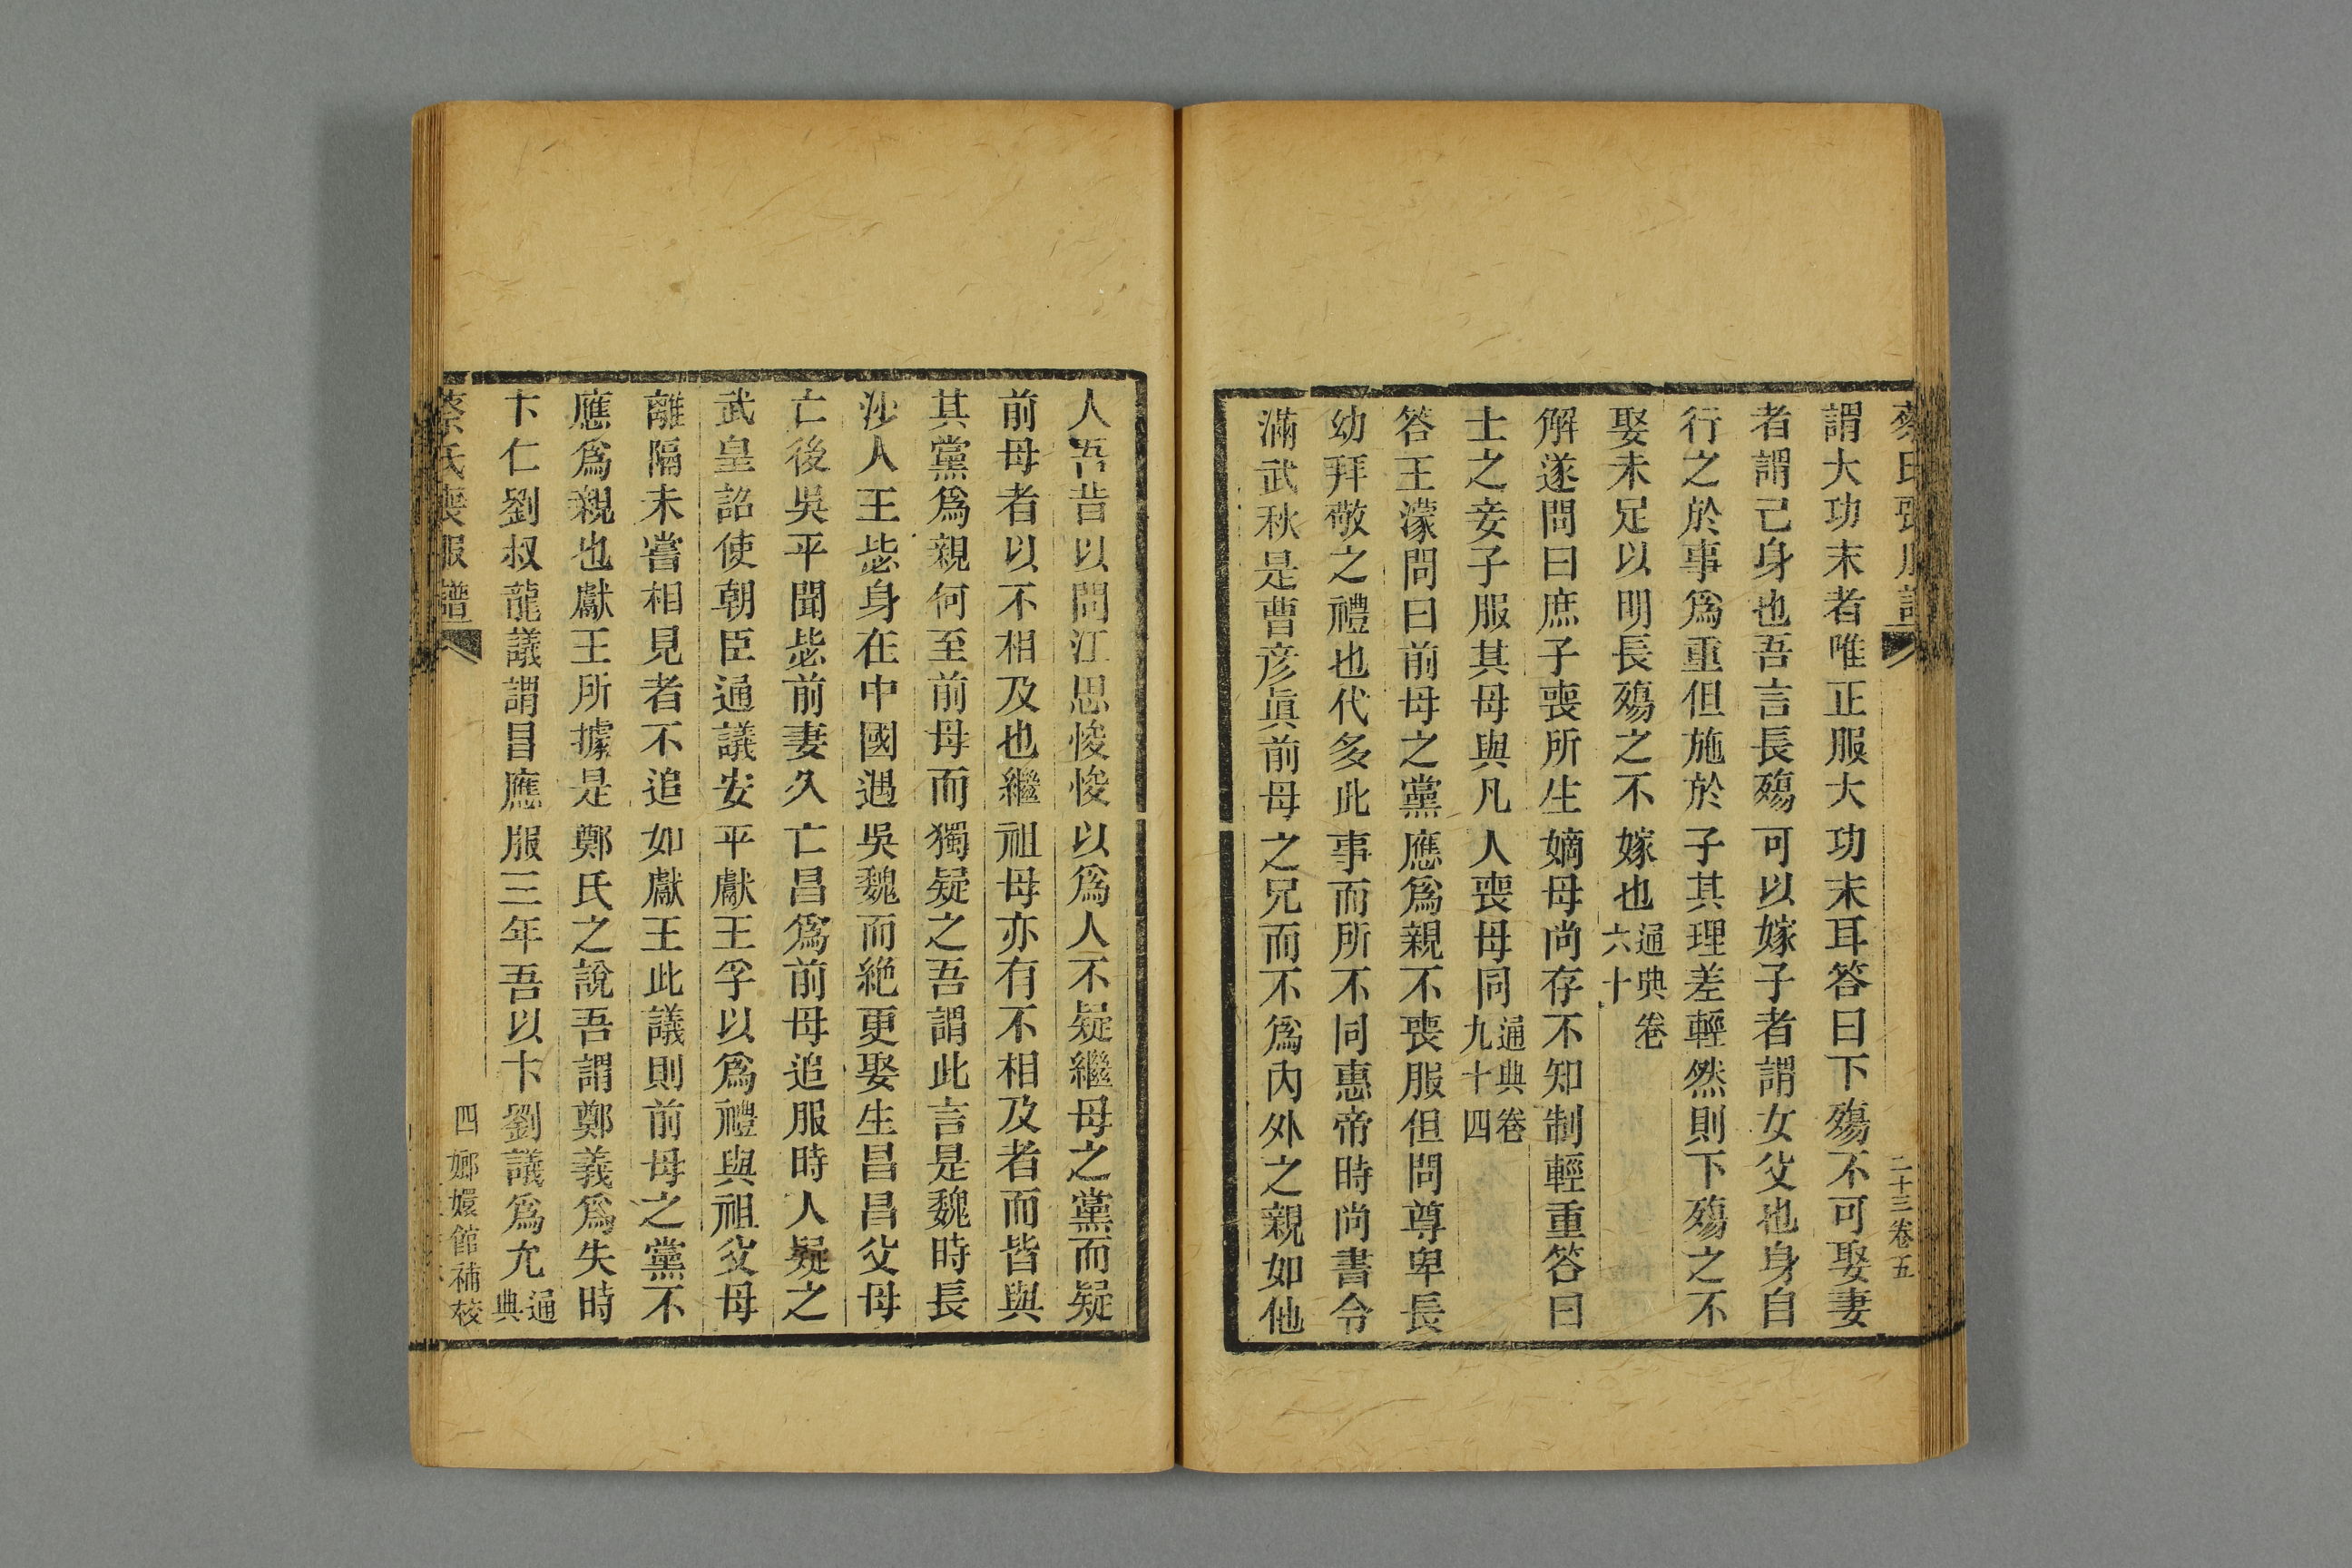 蔡氏喪服譜
二十三卷五
謂大功末者唯正服大功末耳答曰下殤不可娶妻
者謂己身也吾言長殤可以嫁子者謂女父也身自
行之於事爲重但施於子其理差輕然則下殤之不
娶未足以明長殤之不嫁也通典卷六十
解遂問曰庶子喪所生嫡母尚存不知制輕重答曰
士之妾子服其母與凡人喪母同通典卷九十四
答王濛問曰前母之黨應爲親不喪服但問尊卑長
幼拜敬之禮也代多此事而所不同惠帝時尚書令
滿武秋是曹彦眞前母之兄而不爲內外之親如他
人吾昔以問江思悛悛以爲人不疑繼母之黨而疑
前母者以不相及也繼祖母亦有不相及者而皆與
其黨爲親何至前母而獨疑之吾謂此言是魏時長
沙人王毖身在中國遇吳魏而絕更娶生昌昌父母
亡後吳平聞毖前妻久亡昌爲前母追服時人疑之
武皇詔使朝臣通議安平獻王孚以爲禮與祖父母
離隔未嘗相見者不追如獻王此議則前母之黨不
應爲親也獻王所據是鄭氏之說吾謂鄭義爲失時
卞仁劉叔龍議謂昌應服三年吾以卞劉議爲允通典
蔡氏喪服譜
四 嫏嬛館補校